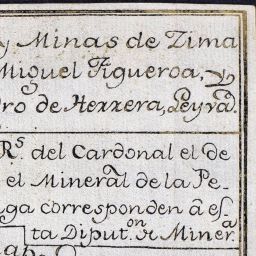 y Minas de Zima
Miguel Figueroa, y
dro de Herrera, Leyva d.
R.s del Cardonal el de
el Mineral de la Pe-
ga corresponden â es-
ta Diput.on de Miner.a